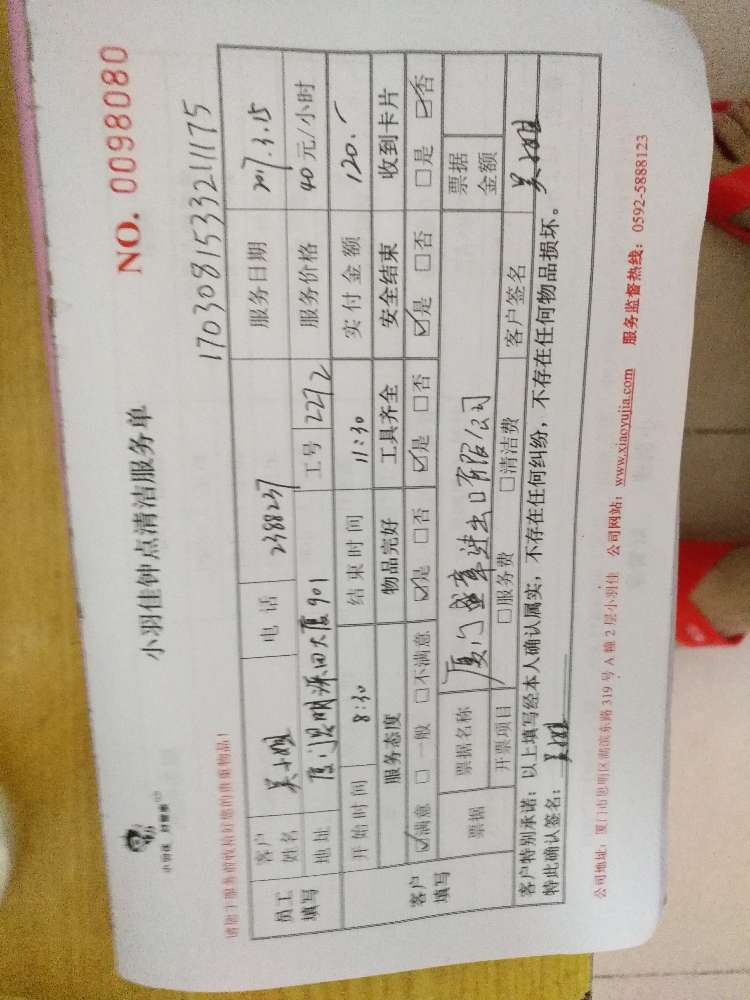 小羽佳 好管家
小羽佳钟点清洁服务单
NO. 0098080
17030815332111175
员工填写
客户姓名 吴小姐 电话 2388237 服务日期 2017.3.15
地址 厦门思明源田大厦901 工号 2272 服务价格 40元/小时
开始时间 8:30 结束时间 11:30 实付金额 120.-
客户填写
服务态度 物品完好 工具齐全 安全结束 收到卡片
☑满意 □一般 □不满意 ☑是 □否 ☑是 □否 ☑是 □否 □是 ☑否
票据 票据名称 厦门盛章进出口有限公司 票据金额
开票项目 □服务费 □清洁费 客户签名 吴小姐
客户特别承诺：以上填写经本人确认属实，不存在任何纠纷，不存在任何物品损坏。
特此确认签名：吴小姐
公司地址：厦门市思明区湖滨东路319号A幢2层小羽佳 公司网站：www.xiaoyujia.com 服务监督热线：0592-5888123